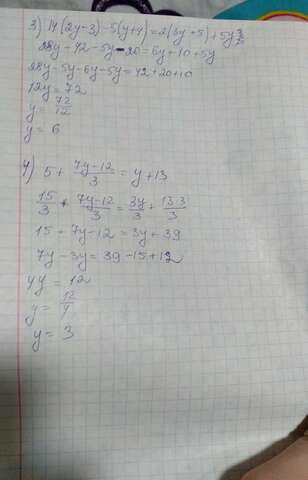 3) 14(2y-3)-5(y+4)=2(3y+5)+5y
28y-42-5y-20=6y+10+5y
28y-5y-6y-5y=42+20+10
12y=72
y=72/12
y=6
4) 5+ 7y-12/3 = y+13
15/3 + 7y-12/3 = 3y/3 + 13·3/3
15+7y-12=3y+39
7y-3y=39-15+12
4y=12
y=12/4
y=3